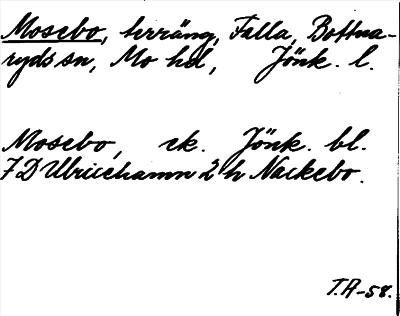 Mosebo, terräng, Falla, Bottna-
ryds sn, Mo hd, Jönk. l.
Mosebo, ek. Jönk. bl.
7D Ulricehamn 2 h Nackebo.
T.A-58.